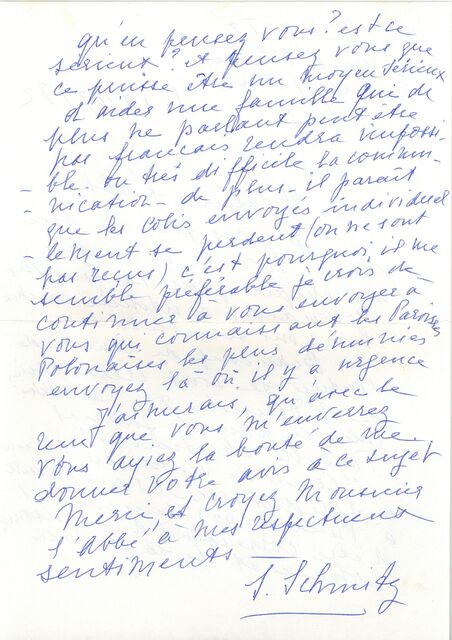 qu'en pensez vous? est ce
sérieux? et pensez vous que
ce puisse être un moyen sérieux
d'aider une famille qui de
plus ne parlant peut être
pas français rendra impossi-
ble - ou très difficile la commu-
- nication - de plus - il paraît
que les colis envoyés individuel
- lement se perdent (on ne sont
pas reçus) c'est pourquoi il me
semble préférable je crois de
continuer à vous envoyer à
vous qui connaissant les Paroisses
Polonaises les plus démunies
envoyez là où il y a urgence
J'aimerais, qu'avec le
reçu que vous m'enverrez
vous ayiez la bonté de me
donner votre avis à ce sujet
Merci, et croyez Monsieur
l'Abbé à mes respectueux
sentiments
S. Schmitz